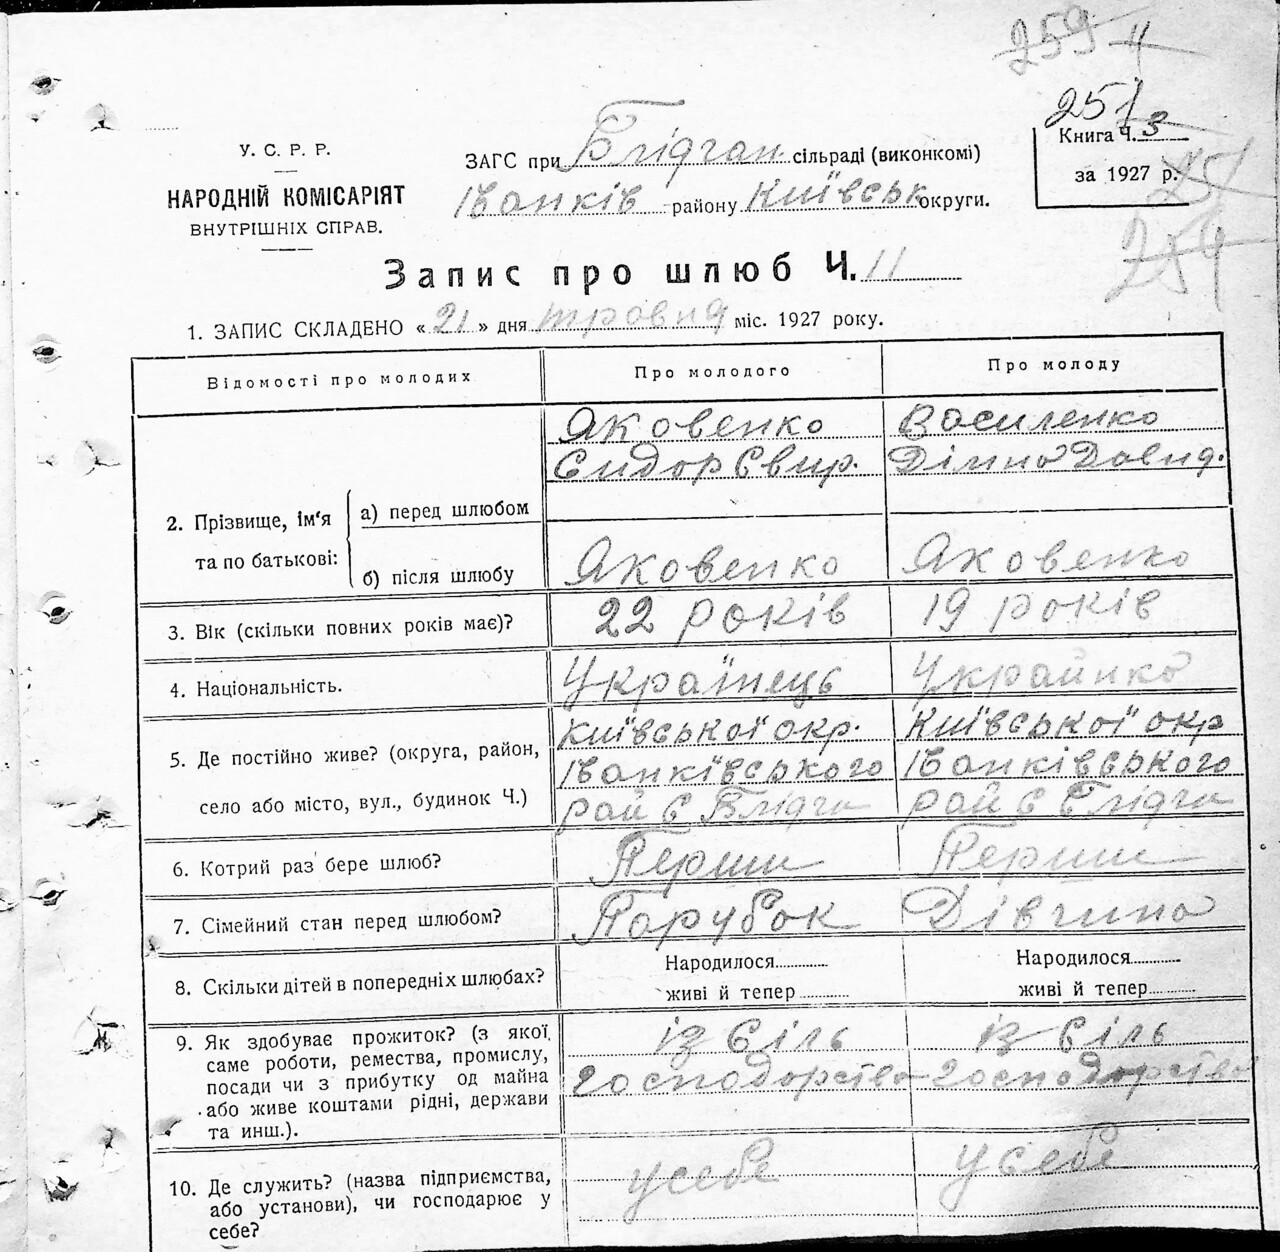 259 11
251
У. С. Р. Р.
НАРОДНІЙ КОМІСАРІЯТ
ВНУТРІШНІХ СПРАВ.
ЗАГС при Блідчан. сільраді (виконкомі)
Іванків району Київськ округи.
Книга Ч. 3
за 1927 р.
251
254
Запис про шлюб Ч. 11
1. ЗАПИС СКЛАДЕНО « 21 » дня травня міс. 1927 року.
Відомості про молодих Про молодого Про молоду
Яковенко Василенко
Сидор Євир. Давид.
2. Прізвище, ім'я та по батькові:
а) перед шлюбом
б) після шлюбу Яковенко Яковенко
3. Вік (скільки повних років має)? 22 років 19 років
4. Національність. Українець Украйнка
5. Де постійно живе? (округа, район, Київської окр. Київської окр
Іванківського Іванківського
село або місто, вул., будинок Ч.) рай с Блідча рай с Блідча
6. Котрий раз бере шлюб? Перши Перши
7. Сімейний стан перед шлюбом? Парубок Дівчина
8. Скільки дітей в попередніх шлюбах? Народилося Народилося
живі й тепер живі й тепер
9. Як здобуває прожиток? (з якої із сіль із сіль
саме роботи, ремества, промислу, господарство господарство
посади чи з прибутку од майна
або живе коштами рідні, держави
та инш.).
10. Де служить? (назва підприємства, у себе у себе
або установи), чи господарює у
себе?